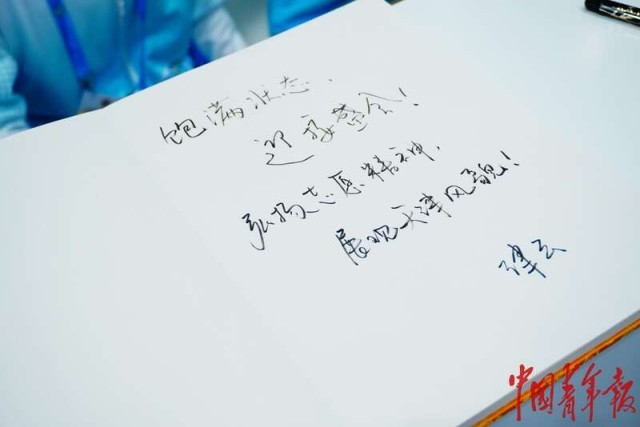 饱满状态,
迎接盛会!
弘扬志愿精神,
展现天津风貌!
津云
中国青年报